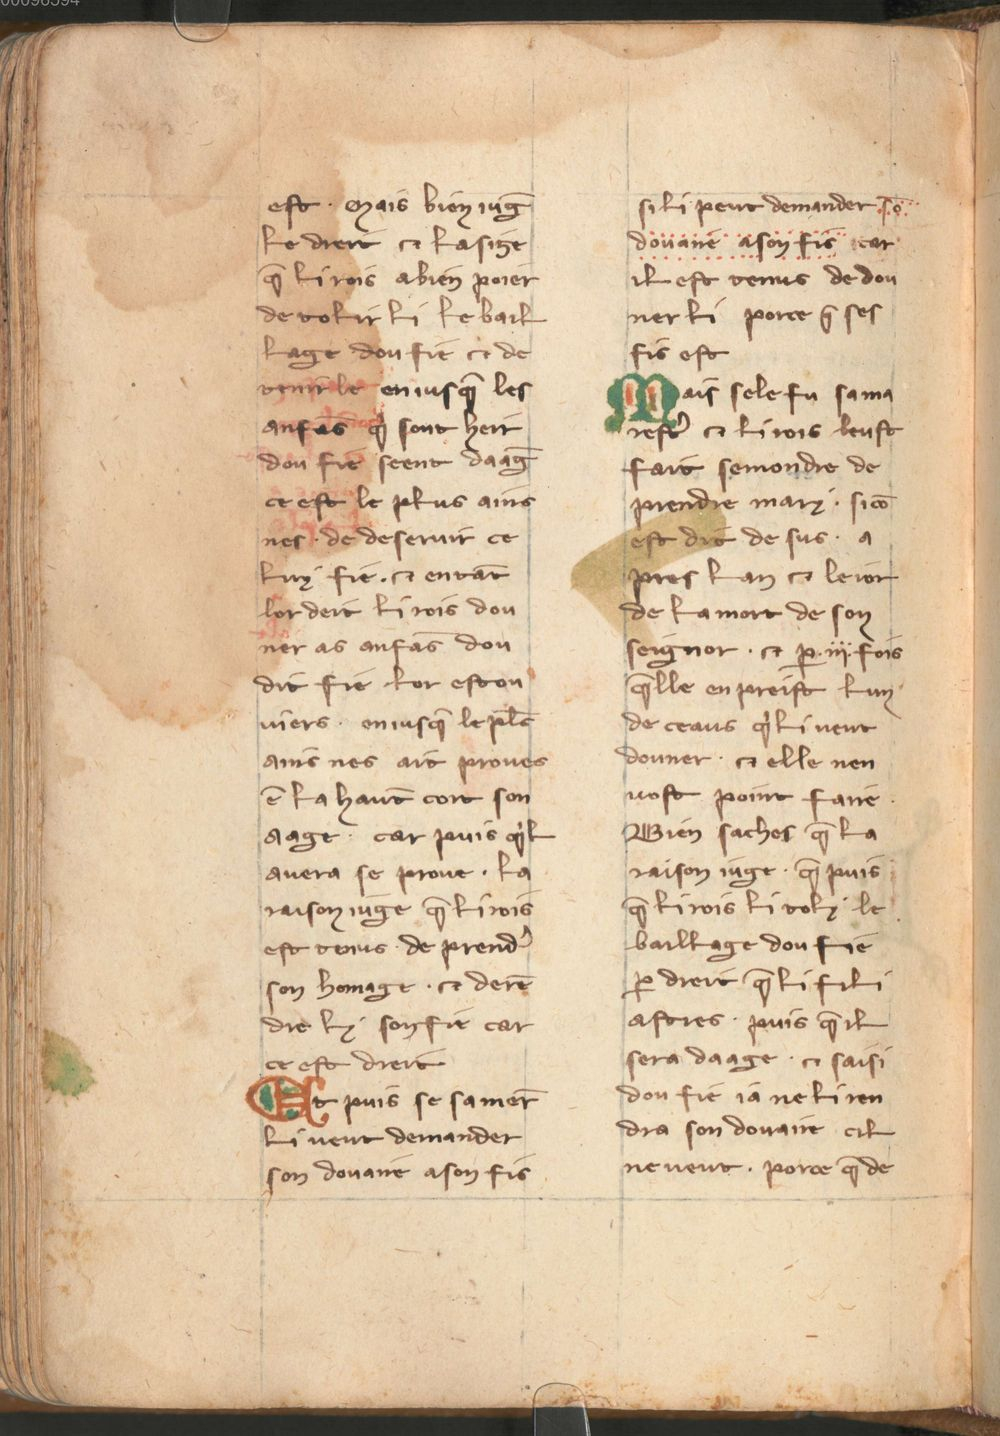 est · Mais bien iug̃
le dreit ⁊ la size
q̃ li rois a bien poeir
de tolir li le bail
lage dou fie ⁊ de
tenir le en iusq̃ les
anfãs qͥ sont heir
dou fie seent daag̃
ce est le plus ains
nes · de deseruir ce
luy fie · ⁊ entãt
lor deit li rois dou
ner as anfãs dou
dit fie lor estou
uiers · en iusq̃ le pl̃s
ains nes ait proues
ẽ la haut̃ cort son
aage · car puis qͥl
auera se proue · la
raison iuge q̃ li rois
est tenus de prend᾽
son homage · ⁊ de rẽ
dre ly son fie car
ce est dreit
Et puis se sa mer̃
li ueut demander
son douaire a son fis
si li peut demander sõ
douaire a son fis car
il est tenus de dou
ner li porce q̃ ses
fis est
Mais se le fu sa ma
rest᾽ ⁊ li rois leust
fait semondre de
prendre mary · si cõ
est dit de sus · a
pres lan ⁊ le ior
de la mort de son
seignor · ⁊ p̲ · iij · fois
q̃lle en preist luy
de ceaus qͥ li ueut
douner · ⁊ elle nen
uost point faire ·
Bien saches q̃ la
raison iuge · q̃ puis
q̃ li rois li toly le
baillage dou fie
p̲ dreit q̃ li fili
astres · puis q̃ il
sera daage · ⁊ saisi
dou fie ia ne li ren
dra son douaire cil
ne ueut · porce q̃ de